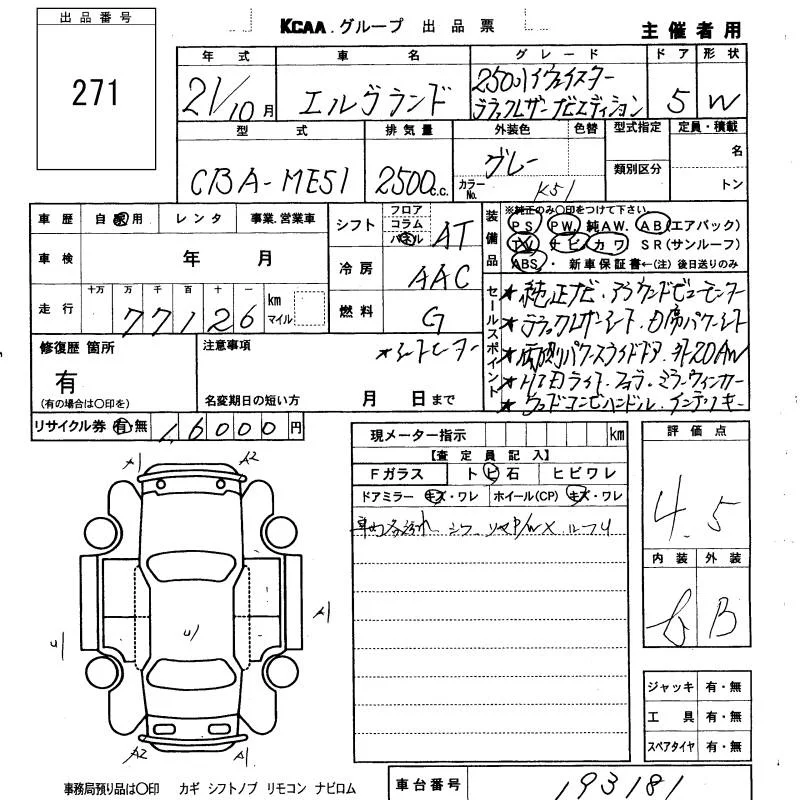 出品番号
271
KCAA.グループ 出品票
主催者用
年式 車名 グレード ドア 形状
21/10月 エルグランド 2500ハイウェイスター 5 W
ブラックレザーナビエディション
型式 排気量 外装色 色替 型式指定 定員・積載
CBA-ME51 2500c.c. グレー 名
カラーNo. K51 類別区分 トン
車歴 自家用 レンタ 事業.営業車
車検 年 月
走行 十万 万 千 百 十 一
77126 km マイル
シフト フロア コラム パネル AT
冷房 AAC
燃料 G
装備品 ※純正のみ〇印をつけて下さい。
PS PW. 純AW. AB(エアバック)
TV ナビ カワ SR(サンルーフ)
ABS・新車保証書←(注)後日送りのみ
セールスポイント
★純正ナビ・アラウンドビューモニター
★ブラックレザーシート・両席パワーシート
★両側パワースライドドア・外20AW
★HIDライト・フォグ・ミラーウィンカー
★ウッドコンビハンドル・インテリキー
修復歴 箇所
有
(有の場合は〇印を)
注意事項
★シートヒーター
名変期日の短い方 月 日まで
リサイクル券 有 無 16000円
現メーター指示 km
【査定員記入】
Fガラス トビ石 ヒビワレ
ドアミラー キズ・ワレ ホイール(CP) キズ・ワレ
評価点
4.5
内装 外装
B
A1 A2
A1
U1 U1
A2 A1
ジャッキ 有・無
工具 有・無
スペアタイヤ 有・無
事務局預り品は〇印 カギ シフトノブ リモコン ナビロム
車台番号 193181